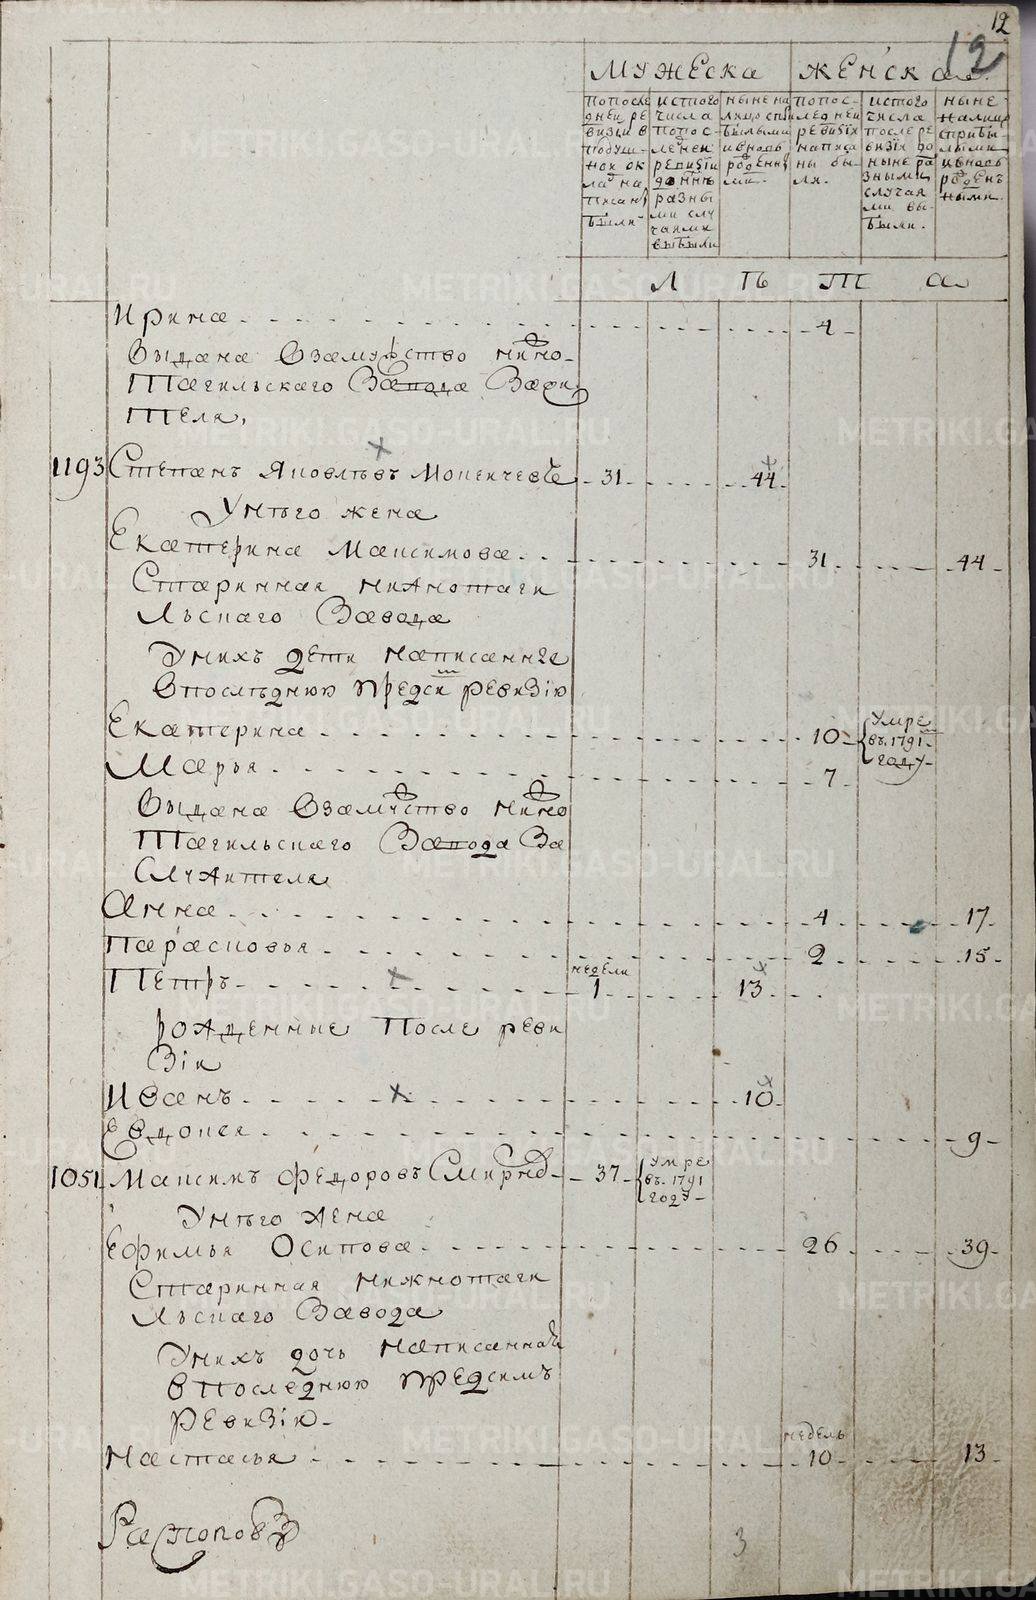 12
12
МУЖЕСКА ЖЕНСКА
попосле
дней ре
визiи в
подуш-
ной ок
ладъ на
писаны
были
истого
числа
попос-
ледней
ревизiи
доннѣ
разны
ми слу
чаями
выбыли
ныне на
лицо спри
былыми
ивновь
рожденны
ми.
попос-
ледней
ревизiи
написа
ны бы-
ли.
истого
числа
после ре
визiи до
ныне ра
зными
случая
ми вы-
были.
ныне
налицо
сприбы
лыми
ивновь
рожден
ными.
Л Ѣ Т А
Ирина 4
Выдана Взамужство нижно-
Тагильскаго Завода Важи
теля,
1193 Степанъ Яковлѣвъ Мокенчевъ 31 44
Унѣго жена
Екатерина Максимова 31 44
Старинная нижнотаги
льскаго Завода
Унихъ дети написанные
Впослѣднюю предсию ревизiю
Екатерина 10 Умре
въ 1791
году
Марья 7
Выдана Взамужство нижно
Тагильскаго Завода За
Служителя
Анна 4 17
Парасковья 2 15
Петръ недели 1 13
рожденные После реви
зiи
Иванъ 10
Евдокея 9
1051 Максимъ Федоровъ Смирнов 37 Умре
въ 1791
году
Унѣго жена
Ефимья Осипова 26 39
Старинная нижнотаги
льскаго Завода
Унихъ дочь написанная
Впоследнюю предсимъ
ревизiю
Настасья недель 10 13
3
METRIKI.GASO-URAL.RU